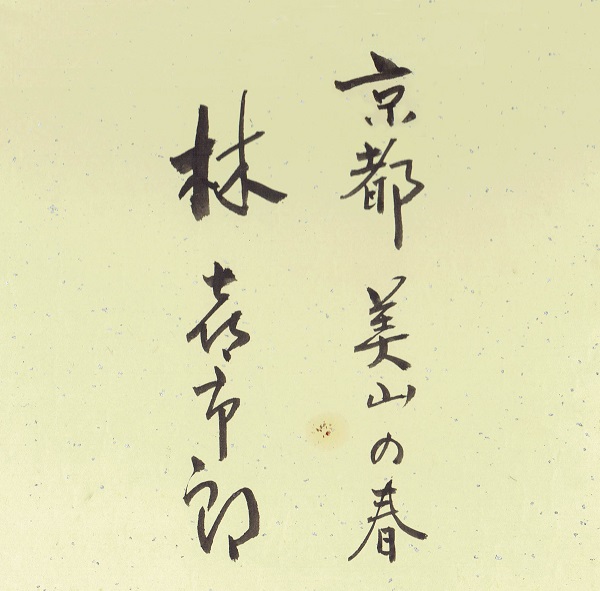 京都 美山の春
林 喜市郎